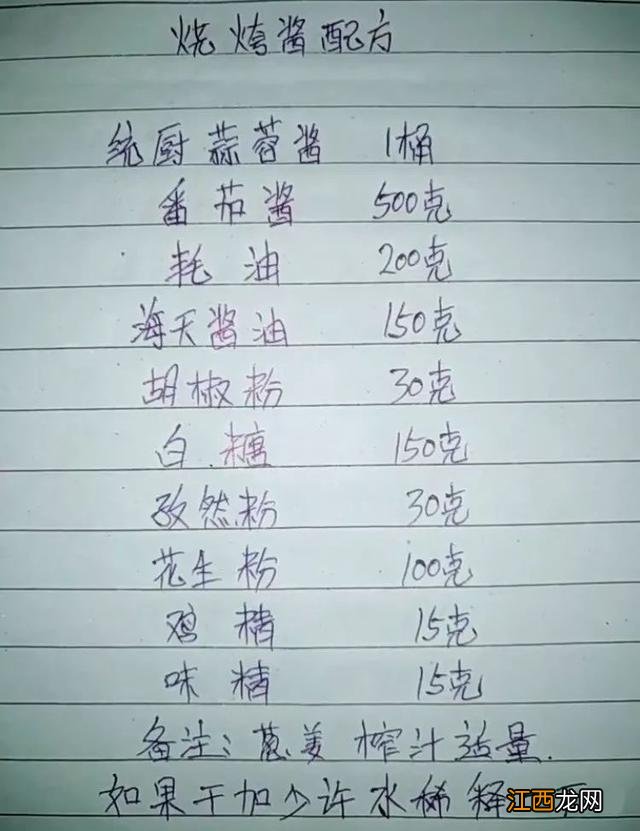 烧烤酱配方
统厨蒜蓉酱 1桶
番茄酱 500克
耗油 200克
海天酱油 150克
胡椒粉 30克
白糖 150克
孜然粉 30克
花生粉 100克
鸡精 15克
味精 15克
备注:葱姜榨汁适量.
如果干加少许水稀释
江西龙网